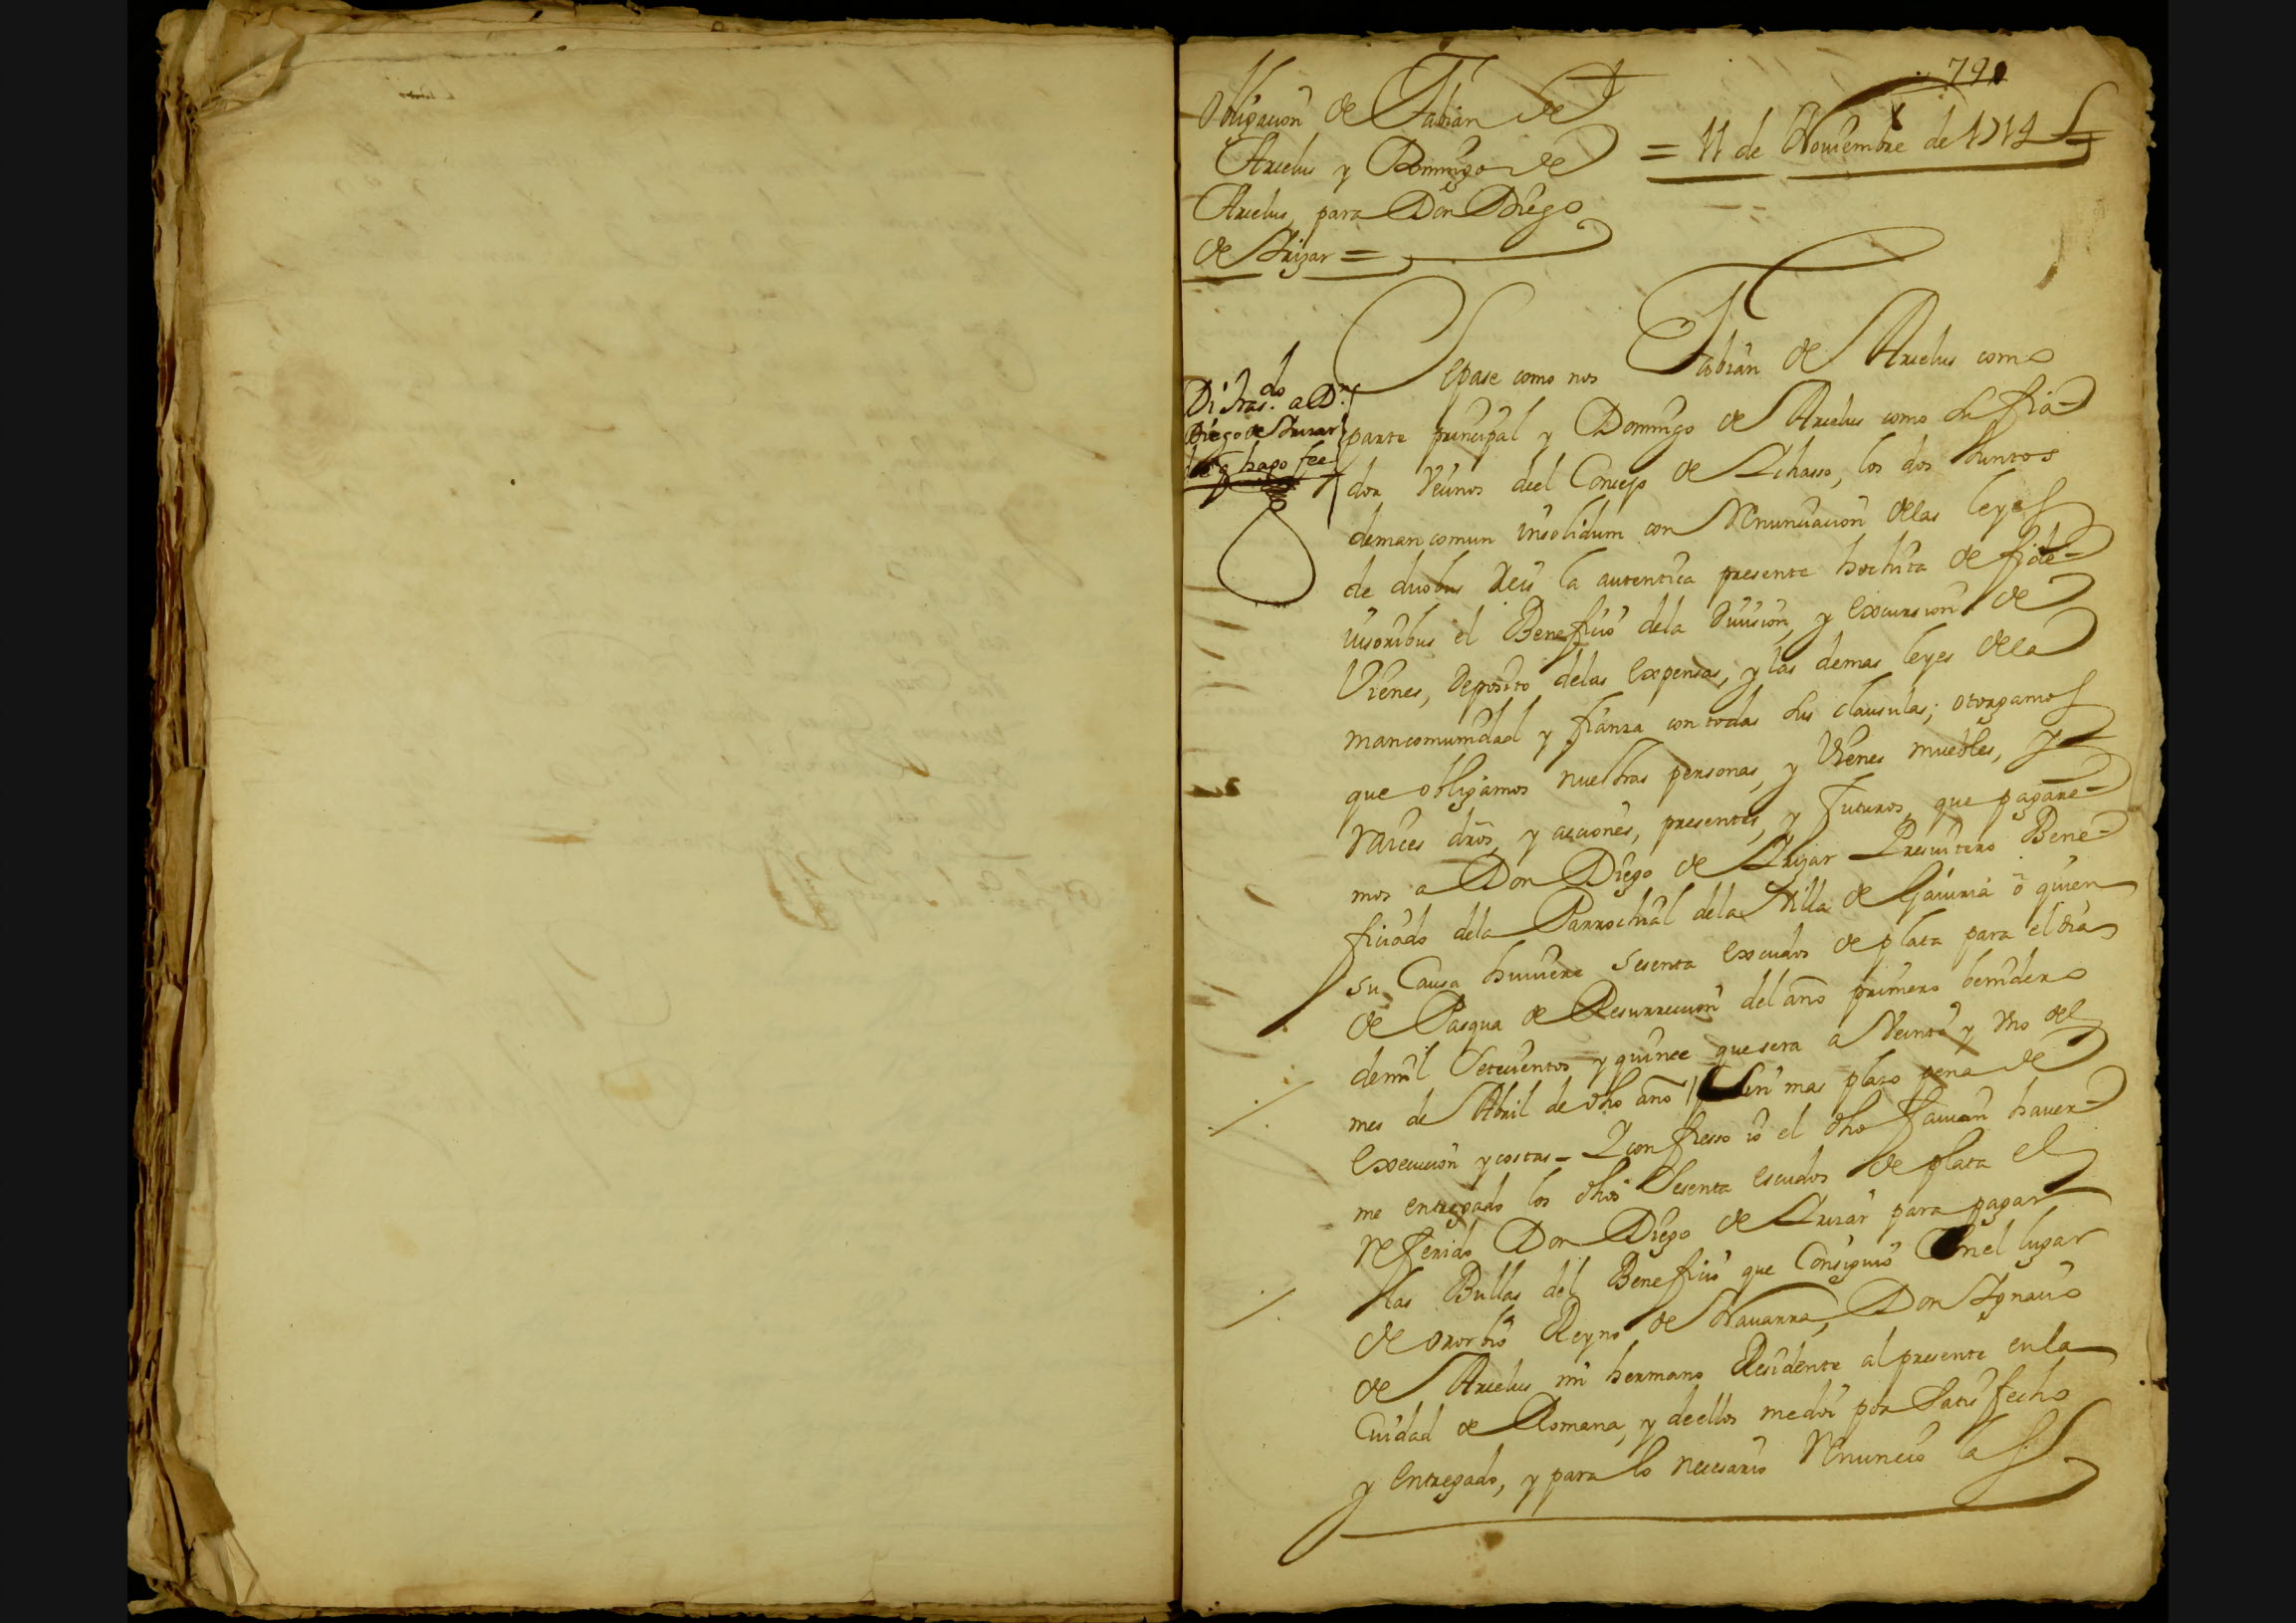 791
Obligacion de Fabian de
Arcelus y Domingo de
Arcelus, para Don Diego
de Irizar =
= 11 de Noviembre de 1714
Di tras.do a D.n
Diego de Irizar
de q hago fee
Sepase como nos Fabian de Arcelus como
parte principal y Domingo de Arcelus como su fia-
dor Vecinos del Concejo de Ichasso, los dos Juntos
demancomun insolidum con Renunciacion de las leyes
de duobus Reis la autentica presente hochita de fide-
iusoribus el Beneficio dela Division, y excursion de
Vienes, deposito delas expensas, y las demas leyes dela
mancomunidad y fianza con todas sus clausulas; otorgamos
que obligamos nuestras personas, y Vienes muebles, y
Raices dros, y acciones, presentes, y futuros, que pagare-
mos a Don Diego de Irizar Presvitero Bene-
ficiado dela Parrochial dela Villa de Gaviria ô quien
su Causa huviere sesenta excudos de plata para el dia
de Pasqua de Resurreccion del año primero benidero
demil Setecientos y quince que sera a Veinte y Uno del
mes de Abril de dho año Sin mas plazo pena de
execucion y costas = Y confiesso io el dho Favian haver-
me entregado los dhos Sesenta escudos de plata el
Referido Don Diego de Irizar para pagar
las Bullas del Beneficio que Consiguio Enel lugar
de ororbio Reyno de Navarra, Don Ignacio
de Arcelus mi hermano Residente al presente en la
Ciudad de Romana, y de ellos me doi por Satisfecho
y entregado, y para lo necesario Renuncio la